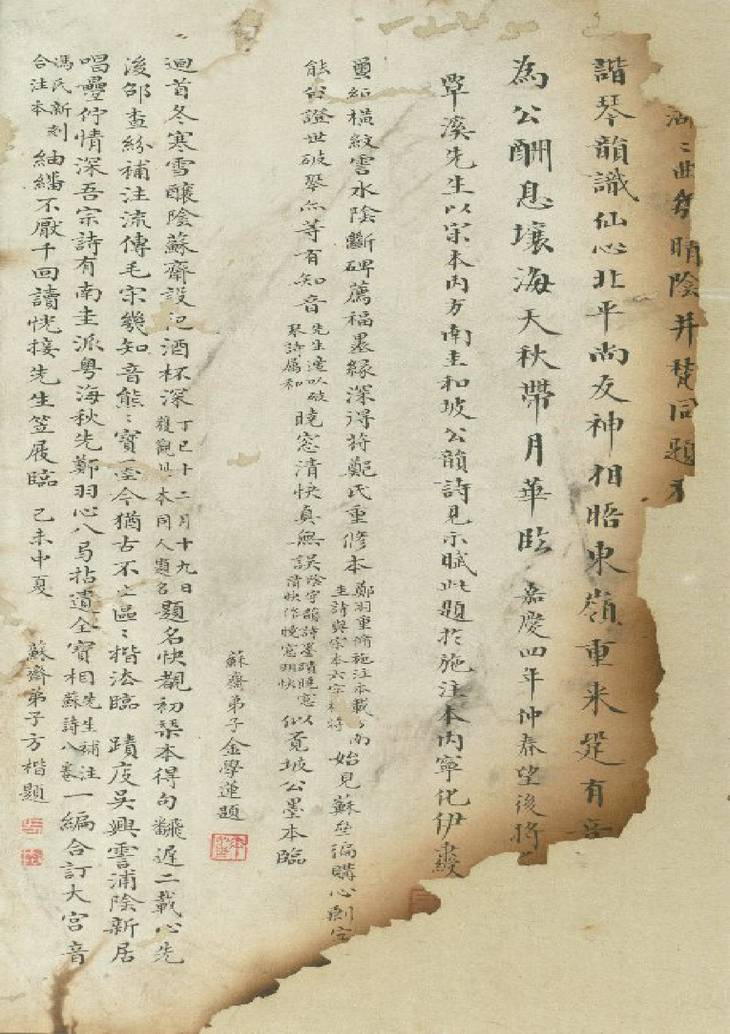 曲老晴陰并賛同題
諧琴韻識仙心北平尚友神相晤東嶺重来是有音
為公酬息壤海天秋帶月華臨 嘉慶四年仲春望後
覃溪先生以宋本内方南圭和坡公韻詩見示賦此題於施注本内寧化伊
橫紋霅水陰斷碑薦福墨緣深得特鄭氏重修本 鄭羽重脩施注本載方南 圭詩與宋本六字 始見蘇壘編購心劇
能公證世破琴亦等有知音 先生遠以破 琴詩屬和 曉窓清快真無誤 除字韻詩墨蹟曉窓 清快作曉窓明快 似覔坡公墨本臨
蘇齋弟子金學蓮題
迴首冬寒雪釀陰蘇齋設祀酒杯深 丁巳十二月十九日 獲觀此本同人題名 題名快覩初琹本得句飜遲二載心先
後邵查紛補注流傳毛宋幾知音熊熊寶至今猶古不止區區楷法臨 蹟庋吳興霅浦陰新居
唱疊佇情深吾宗詩有南圭派粵海秋先鄭羽心八馬拈遺全寶相 先生補注 蘇詩八卷 一編合訂大宫音
馮氏新刻 合注本 紬繙不厭千回讀恍接先生笠屐臨 己未中夏 蘇齋弟子方楷題